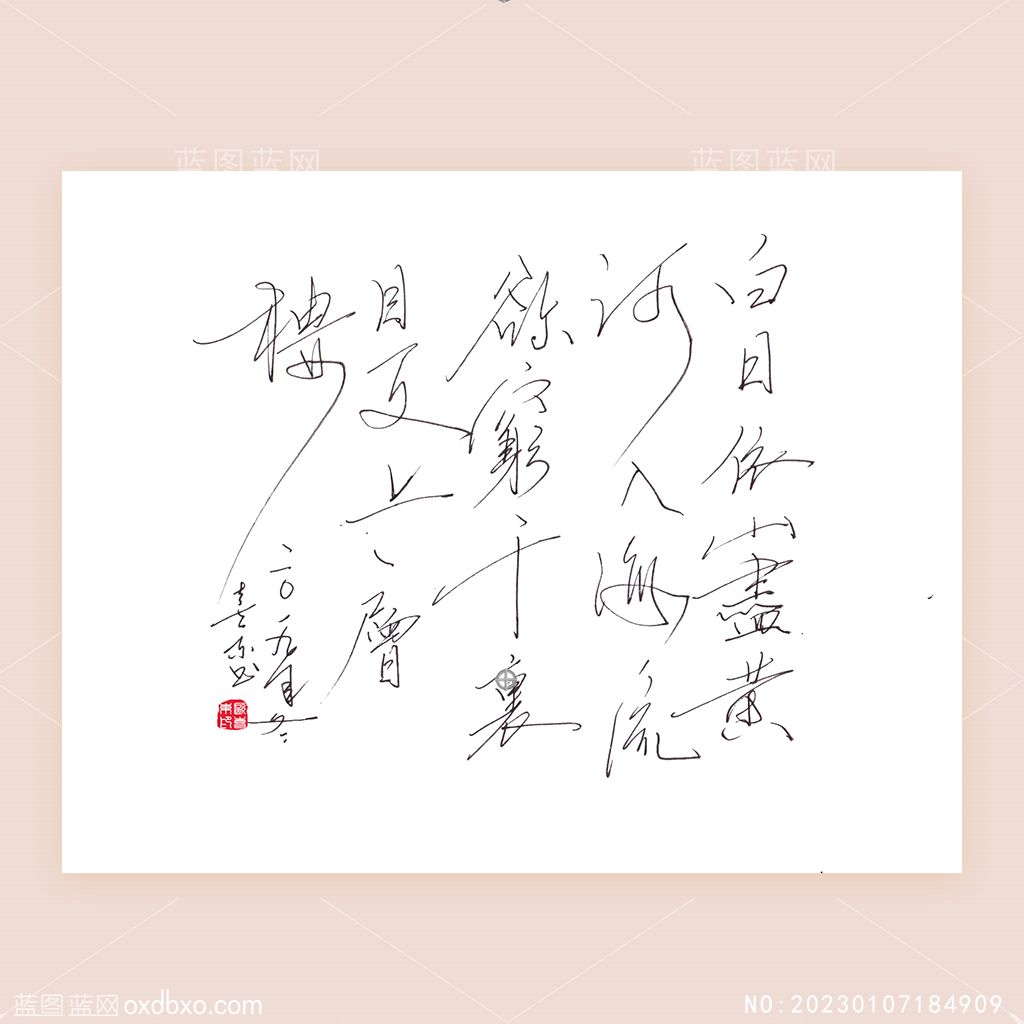 蓝图蓝网
蓝图蓝网
白日依山盡黄
河入海流
欲窮千裏
目更上一層
樓
二〇一九年冬
喜东书
蓝图蓝网 oxdbxo.com
NO:20230107184909